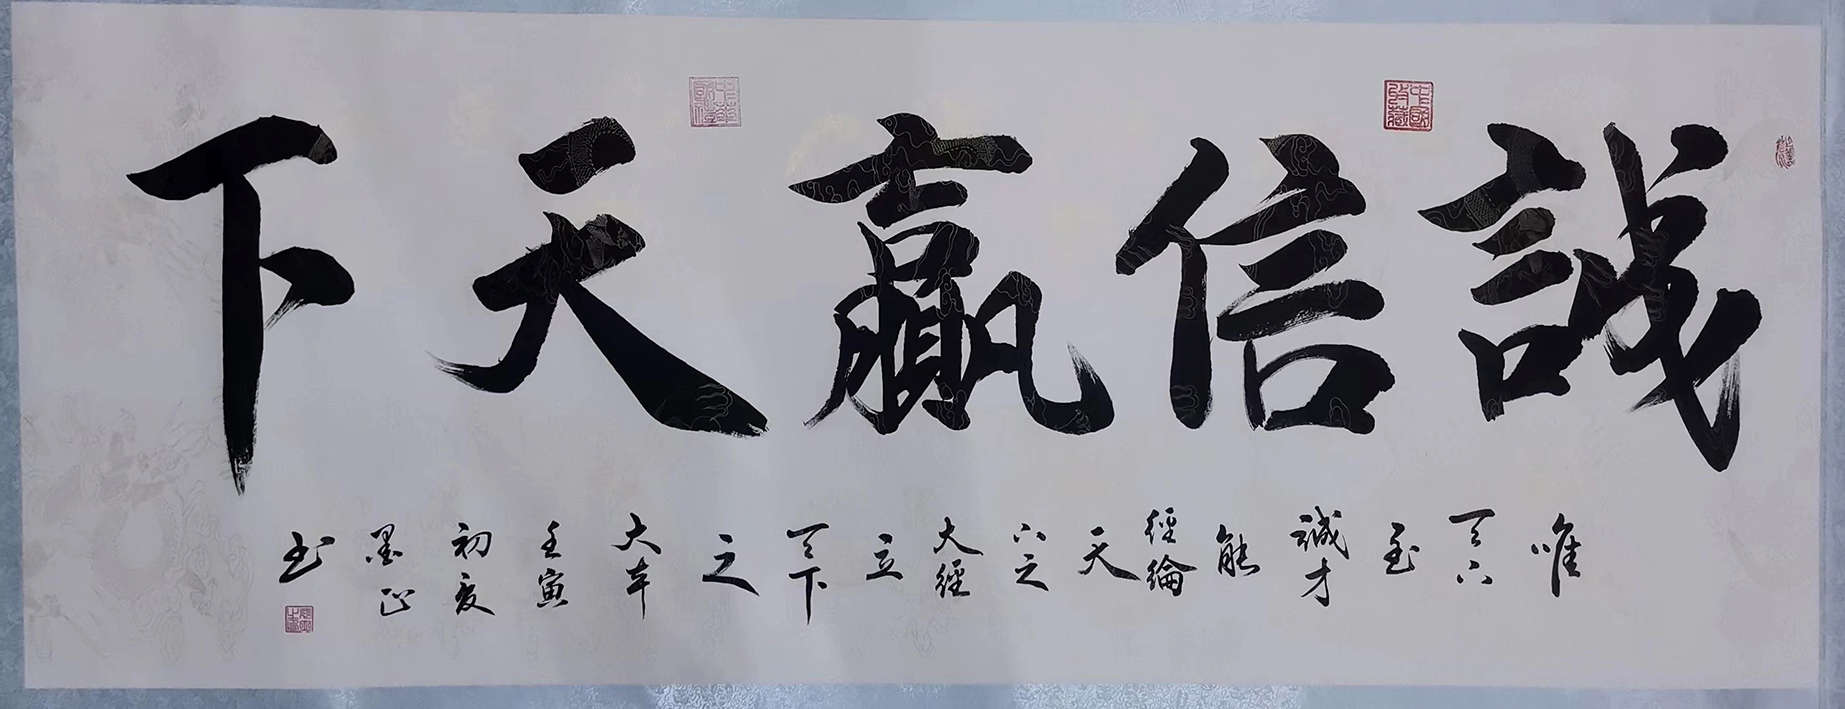 誠信贏天下
唯天下至誠才能經綸天下之大經立天下之大本壬寅初夏墨正书